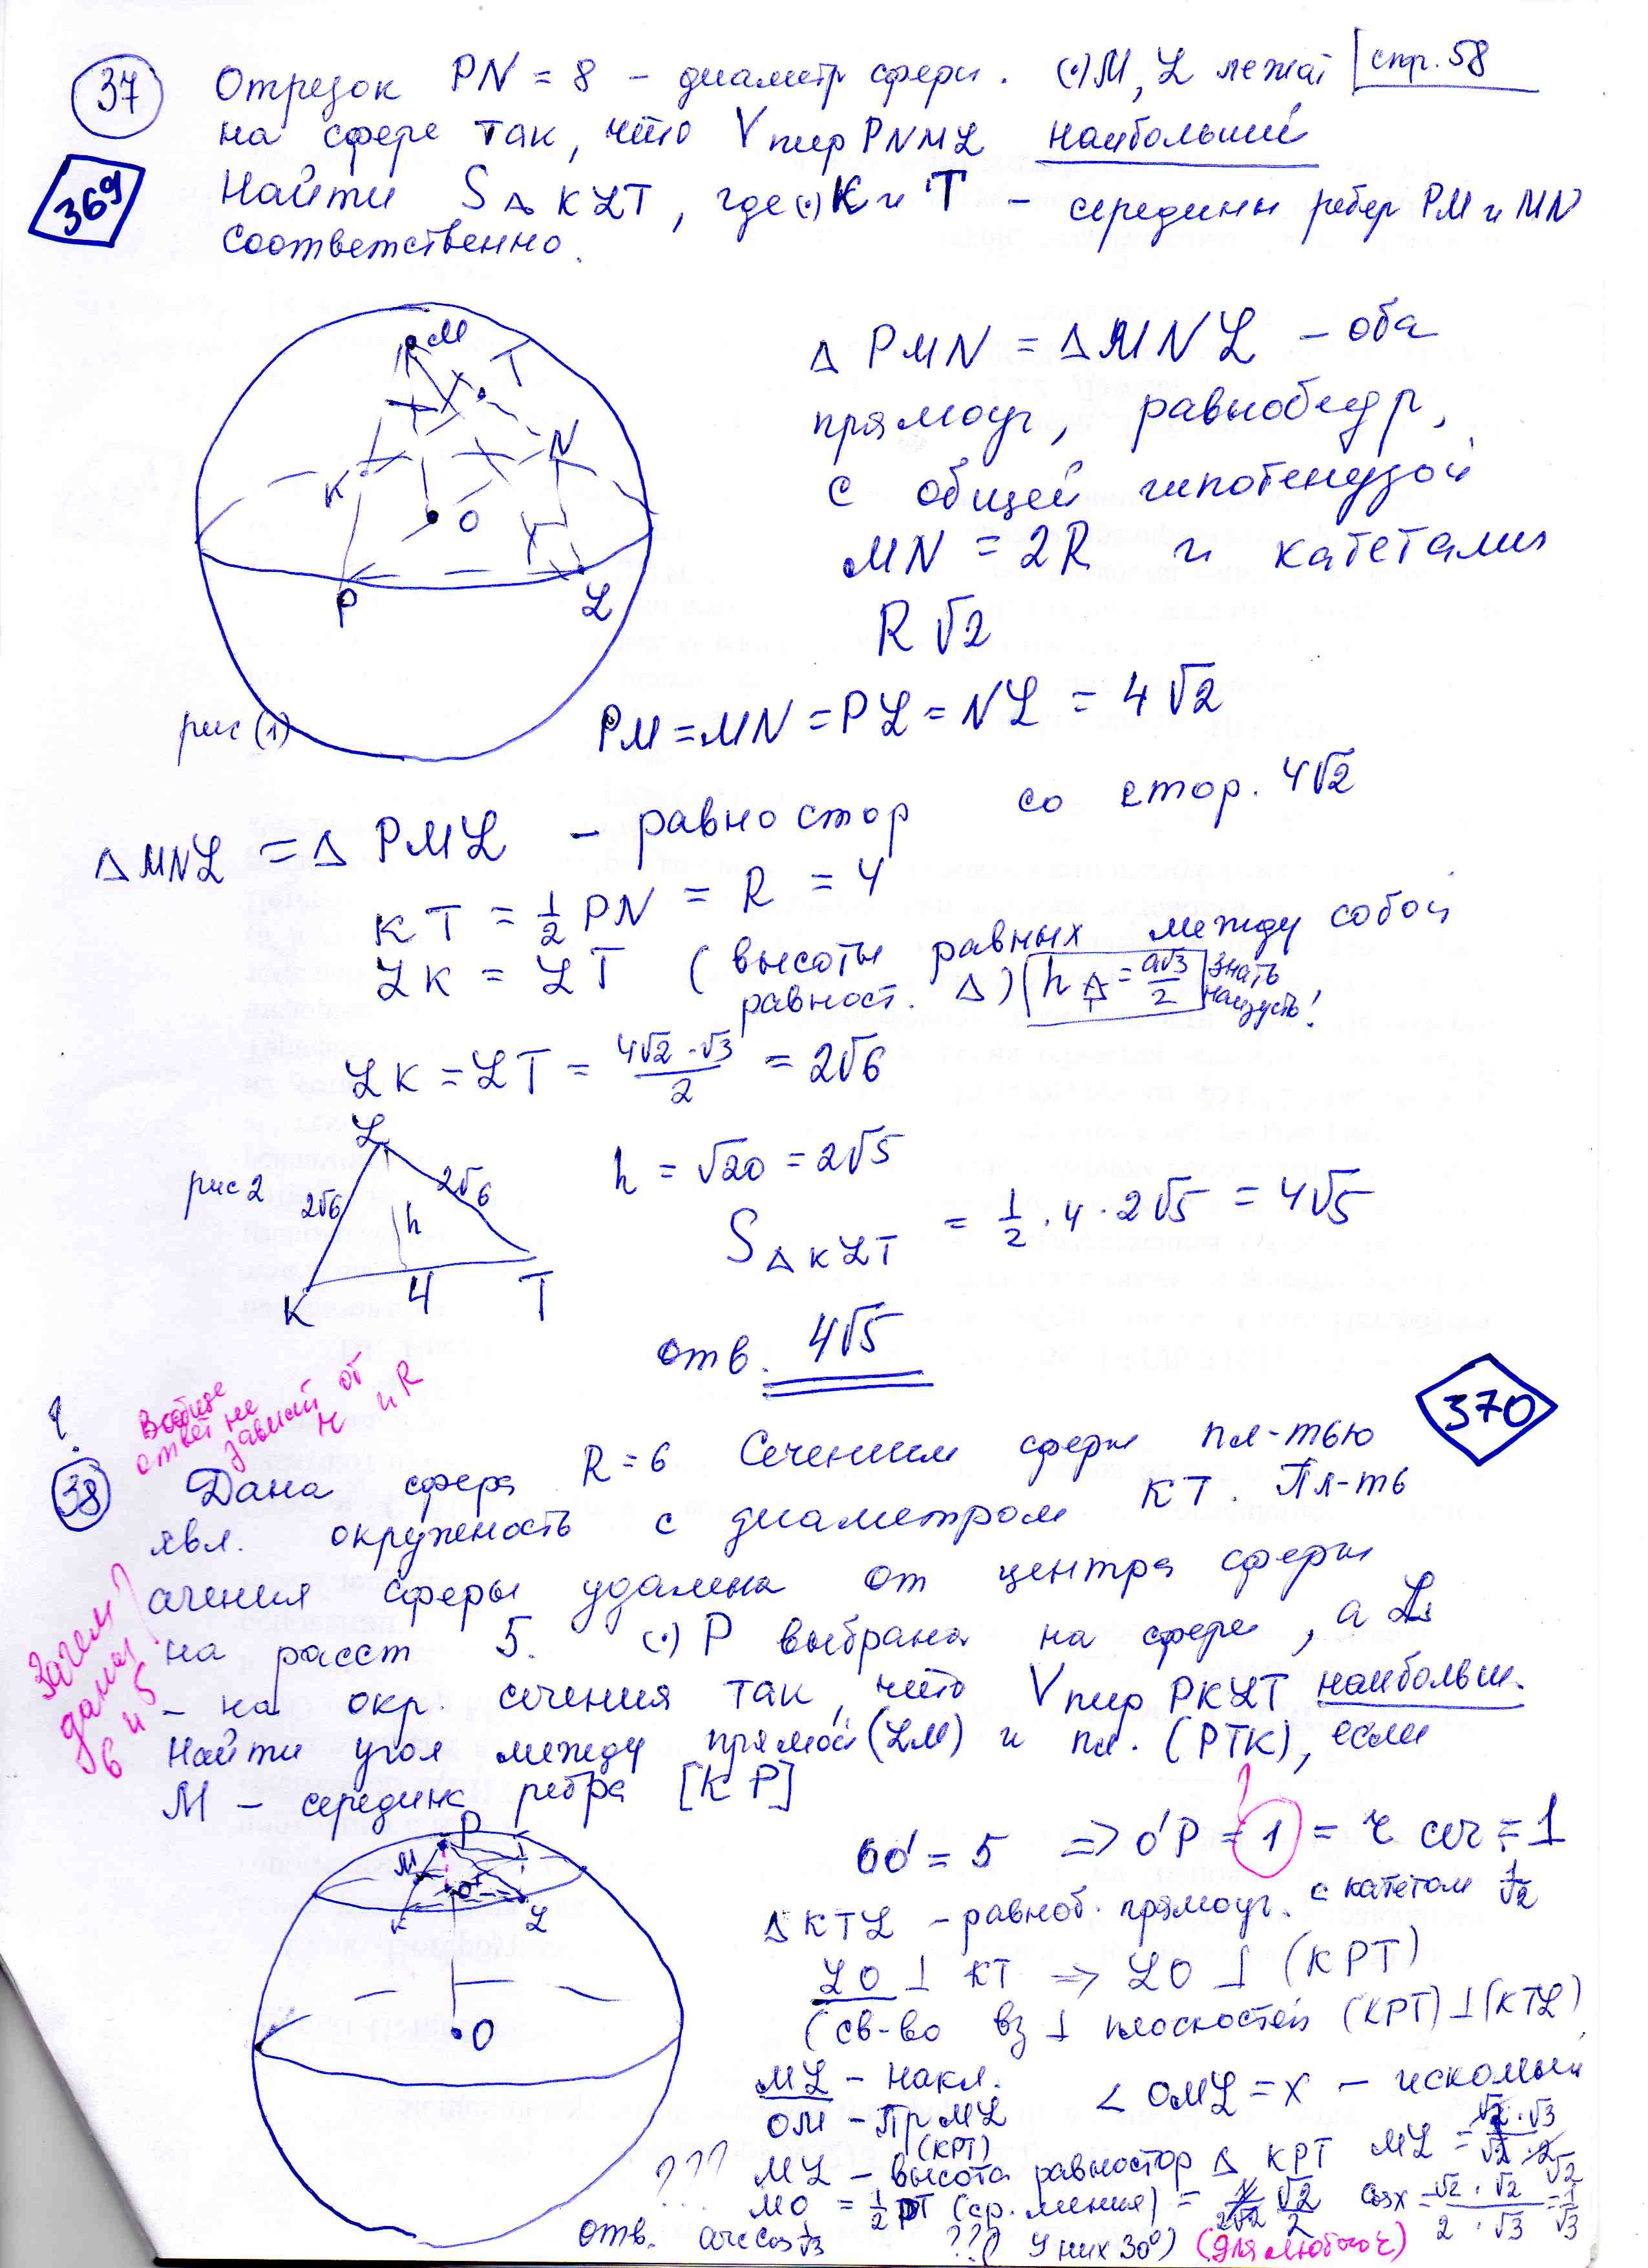 37 Отрезок PN = 8 – диаметр сферы. (·) M, L лежат стр. 58
на сфере так, что V пир PNML наибольший
369 Найти S △ KLT, где (·) K и T – середины ребер PM и MN
соответственно.
M
T
N
K
O
P
L
рис (1)
△ PMN = △ MNL – оба
прямоуг, равнобедр,
с общей гипотенузой
MN = 2R и катетами
R√2
PM = MN = PL = NL = 4√2
△ MNL = △ PML – равностор со стор. 4√2
KT = 1/2 PN = R = 4
LK = LT (высоты равных между собой
равност. △) h△ = a√3/2 знать наизусть!
LK = LT = 4√2·√3/2 = 2√6
L
рис 2
2√6
2√6
h
K
4
T
h = √20 = 2√5
S △ KLT = 1/2 · 4 · 2√5 = 4√5
отв. 4√5
370
? Вообще
ответ не
зависит от
и R
38 Дана сфера R = 6 Сечением сферы пл-тью
явл. окружность с диаметром KT. Пл-ть
сечения сферы удалена от центра сферы
на расст 5. (·) P выбрана на сфере, а L
– на окр. сечения так, что V пир PKLT наибольш.
Найти угол между прямой (LM) и пл. (PTK), если
M – середина ребра [KP]
Зачем
даны
6 и 5
?
P
M
T
O'
K
L
O
OO' = 5 => O'P = 1 = r сеч = 1
?
△ KTL – равноб. прямоуг. с катетом
LO ⊥ KT => LO ⊥ (KPT)
(св-во вз ⊥ плоскостей (KPT) ⊥ (KTL)
ML – накл.
∠ OML = x – искомый
OM – пр ML
(KPT)
??? ML – высота равностор △ KPT ML =
MO = 1/2 PT (ср. линия) = √2/2 cos x = √2·√2/2·√3 = 1/√3
отв. arccos 1/√3 ??? (У них 30°) (для любого r)